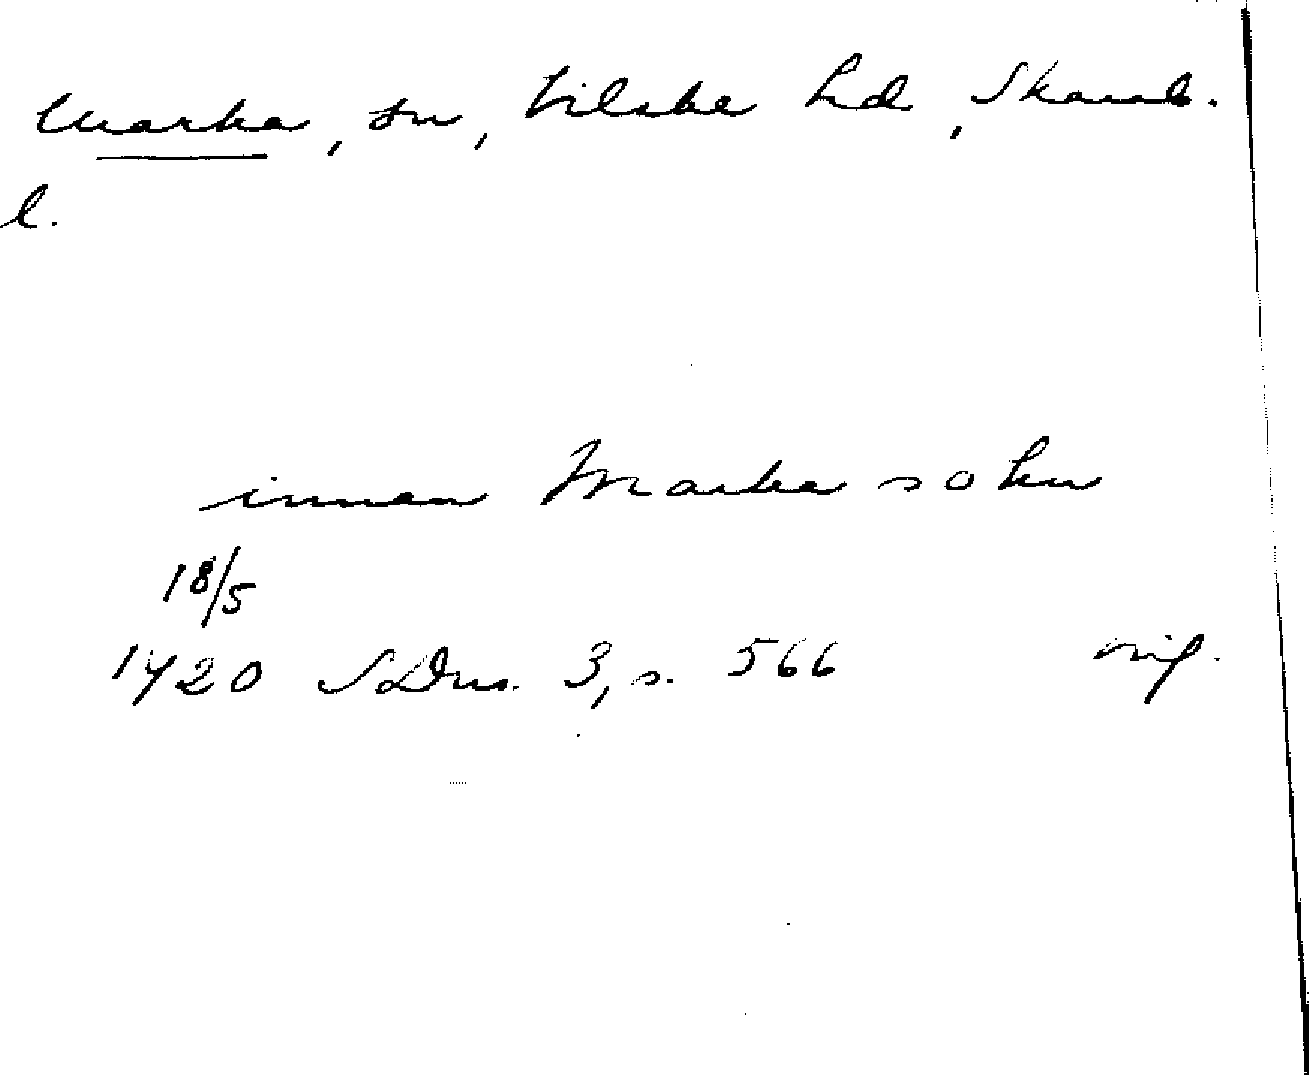 Marka, sn, Vilske hd, Skarab.
l.
innen Marka sokn
18/5
1420 SDns. 3, s. 566 orig.